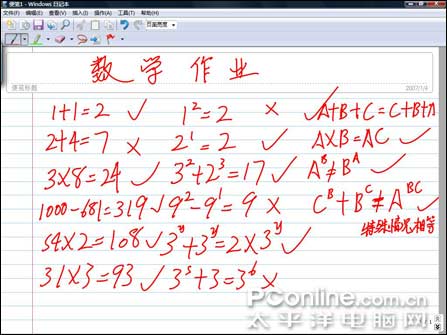 便笺1 - Windows 日记本
文件(F) 编辑(E) 查看(V) 插入(I) 操作(A) 工具(T) 帮助(H)
页面宽度
数学作业
便笺标题 2007/1/4
1+1=2 ✓ 1²=2 × ✓ A+B+C=C+B+A
2+4=7 × 2¹=2 ✓ A×B=AC ✓
3×8=24 ✓ 3²+2³=17 ✓ Aᴮ≠Bᴬ ✓
1000-681=319 ✓ 9²-9¹=9 × Cᴮ+Bᶜ≠Aᴮᶜ
特殊情况相等
54×2=108 ✓ 3ʸ+3ʸ=2×3ʸ ✓
31×3=93 ✓ 3⁵+3=3⁶ ×
PConline.com.cn
太平洋电脑网